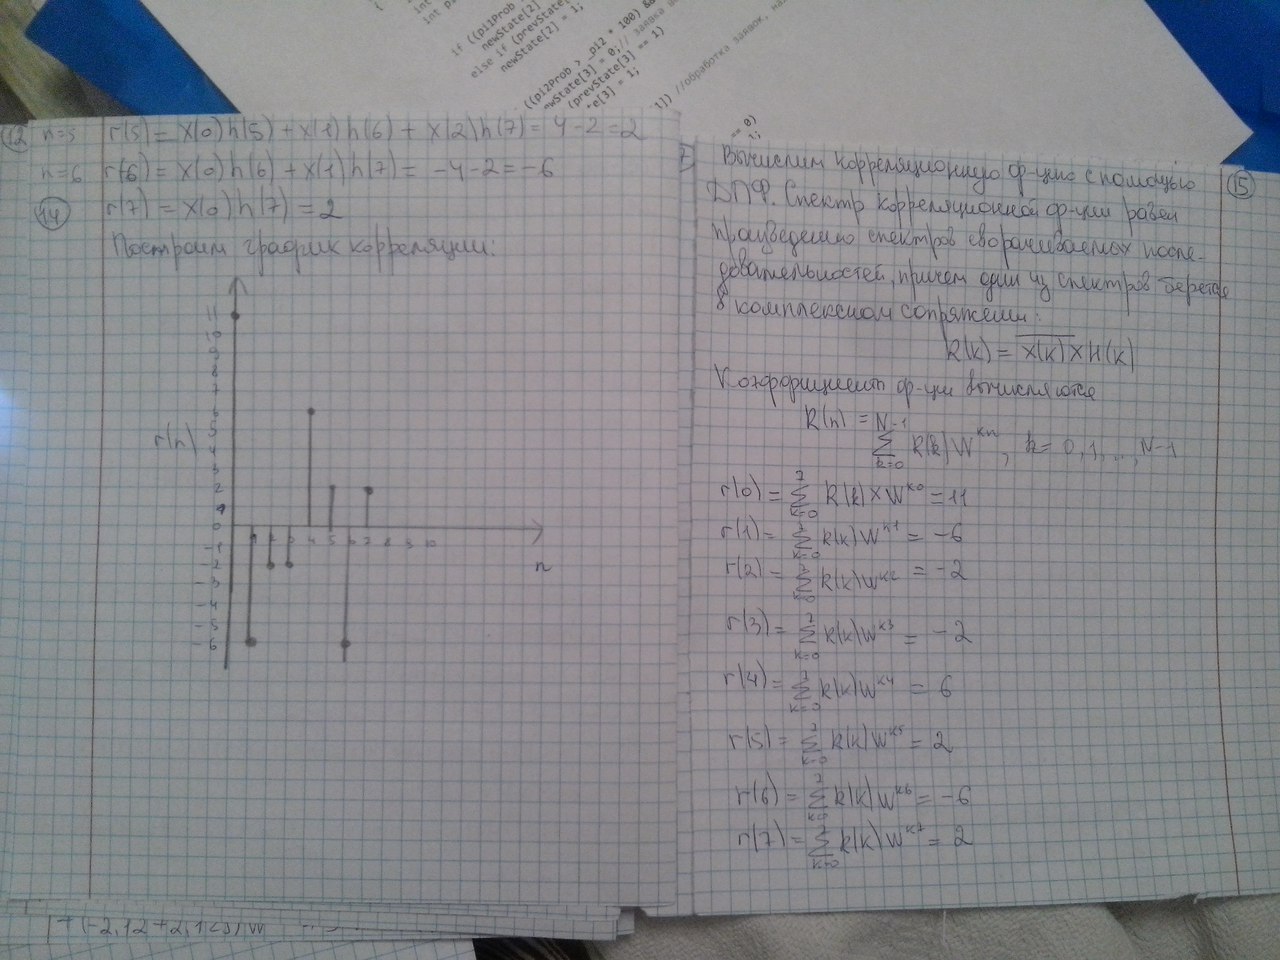 int p
if ((p11Prob
newState[2]
else if (prevState
newState[2] = 1;
((p12Prob > _p12 * 100) &&
newState[3] = 0; // заявка
(prevState[3] == 1)
[3] = 1;
]) //обработка заявок,
== 0)
12 n=5 r(5) = x(0)h(5) + x(1)h(6) + x(2)h(7) = 4-2=2
n=6 r(6) = x(0)h(6) + x(1)h(7) = -4-2=-6
14 r(7) = x(0)h(7) = 2
Построим график корреляции:
11
10
9
8
7
6
5
4
3
2
1
0
-1
-2
-3
-4
-5
-6
r(n)
1 2 3 4 5 6 7 8 9 10
n
15
Вычислим корреляционную ф-цию с помощью
ДПФ. Спектр корреляционной ф-ции равен
произведению спектров сворачиваемых после-
довательностей, причем один из спектров берется
в комплексном сопряжении:
R(k) = \overline{X(k)} × H(k)
Коэффициент ф-ции вычисляются
R(n) = \sum_{k=0}^{N-1} R(k) W^{kn}, k = 0, 1, ..., N-1
r(0) = \sum_{k=0}^{7} R(k) × W^{k0} = 11
r(1) = \sum_{k=0}^{7} R(k) W^{k1} = -6
r(2) = \sum_{k=0}^{7} R(k) W^{k2} = -2
r(3) = \sum_{k=0}^{7} R(k) W^{k3} = -2
r(4) = \sum_{k=0}^{7} R(k) W^{k4} = 6
r(5) = \sum_{k=0}^{7} R(k) W^{k5} = 2
r(6) = \sum_{k=0}^{7} R(k) W^{k6} = -6
r(7) = \sum_{k=0}^{7} R(k) W^{k7} = 2